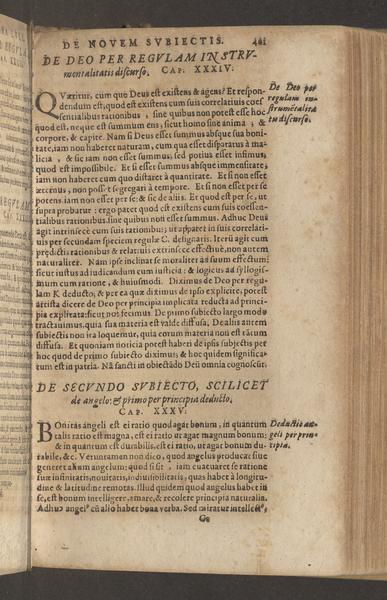 DE NOVEM SVBIECTIS. 461
DE DEO PER REGVLAM INSTRV-
mentalitatis discurso. CAP. XXXIV.
De Deo per
regulam in-
strumētalita
tis discurso.
QVæritur, cum quo Deus est existens & agens? Et respon-
dendum est; quod est existens cum suis correlatiuis coes
sentialibus rationibus, sine quibus non potest esse hoc
quod est, neque est summum ens, sicut homo sine anima, &
corpore, & capite. Nam si Deus esset summus absque sua boni
tate, iam non haberet naturam, cum qua esset disparatus à ma-
licia, & sic iam non esset summus, sed potius esset infimus,
quod est impossibile. Et si esset summus absque immensitate,
iam non haberet cum quo distaret à quantitate. Et si non esset
æternus, non posset segregari à tempore. Et si non esset per se
potens, iam non esset per se: & sic de aliis. Et quod est per se, ut
supra probatur: ergo patet quod est existens cum suis coessen-
tialibus rationibus, sine quibus non esset summus. Adhuc Deus
agit intrinsecè cum suis rationibus, ut apparet in suis correlati-
uis per secundam speciem regulæ C. designatis. Iterū agit cum
prędictis rationibus & relatiuis extrinsece effectiuè, non autem
naturaliter. Nam ipse inclinat se moraliter ad suum effectum:
sicut iustus ad iudicandum cum iusticia: & logicus ad syllogis-
mum cum ratione, & huiusmodi. Diximus de Deo per regu-
lam K. deducto, & per ea quæ diximus de ipso explicite, potest
artista dicere de Deo per principia implicata reducta ad princi-
pia explicata: sicut nos fecimus. De primo subiecto largo modo
tractauimus, quia sua materia est valde diffusa, De aliis autem
subiectis non ita loquemur, quia eorum materia non est tātum
diffusa. Et quoniam noticia potest haberi de ipsis subiectis per
hoc quod de primo subiecto diximus; & hoc quidem significa-
tum est in patria. Nā sancti in obiectādo Deū omnia cognoscūt.
DE SECVNDO SVBIECTO, SCILICET
de angelo: & primo per principia deducto.
CAP. XXXV.
Deductio an-
geli per prin-
cipia.
BOnitas angeli est ei ratio quod agat bonum, in quantum
talis ratio est magna, est ei ratio ut agat magnum bonum:
& in quantum est durabilis, est ei ratio, ut agat bonum du-
rabile, &c. Veruntamen non dico, quod angelus producat siue
generet alium angelum; quod si sit, iam euacuaret se ratione
suæ infinitatis, nouitatis, indiuisibilitatis, quas habet à longitu-
dine & latitudine remotas. Illud quidem quod angelus habet in
se, est bonum intelligere, amare, & recolere principia naturalia.
Adhuc angel⁹ cū alio habet bona verba. Sed miratur intellect⁹,
Gg